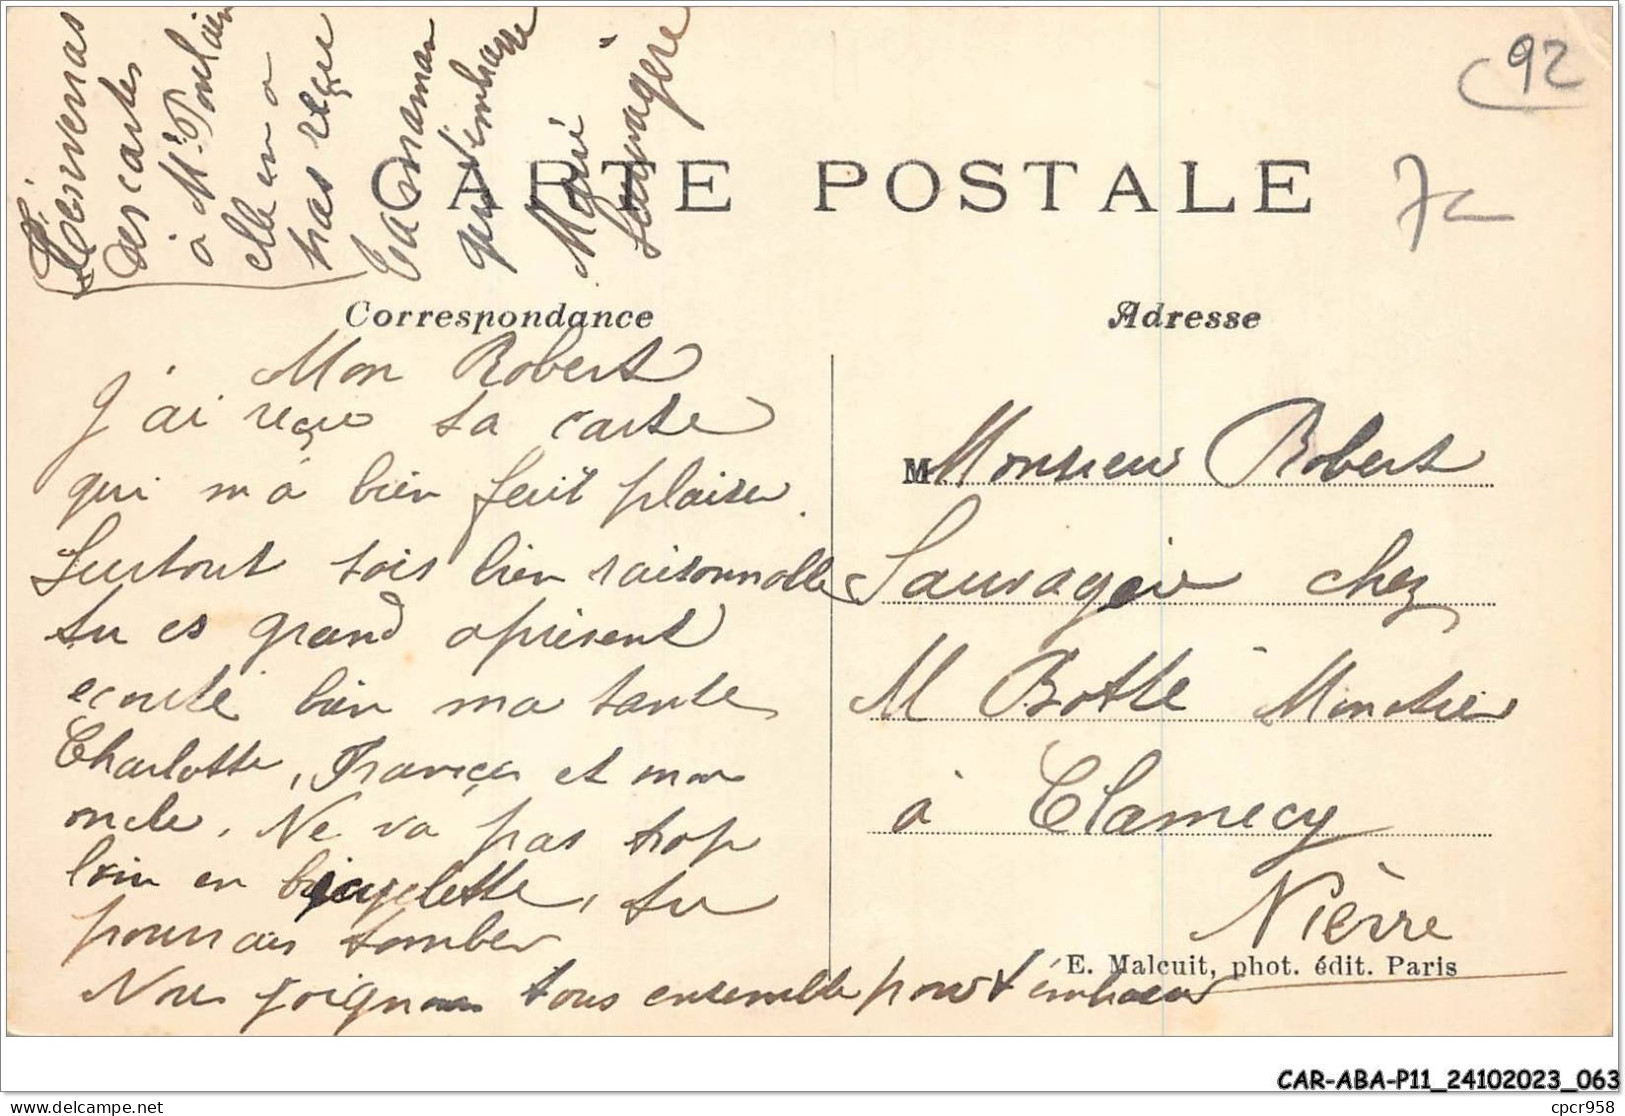 Tu enverras
des cartes
à Mr Poulain
elle en a
pas reçu
Ta maman
qui t'embrasse
Marie
Sauvagère
92
7c
CARTE POSTALE
Correspondance
Adresse
Mon Robert
J'ai reçu ta carte
qui m'a bien fait plaisir.
Surtout sois bien raisonnable
tu es grand aprisent
ecoute bien ma tante
Charlotte, França et mon
oncle. Ne va pas trop
loin en bicyclette, tu
pourrais tomber
Nous joignons tous ensemble pour t'embrasser
M Monsieur Robert
Sauvagère chez
M Botte
à Clamecy
Nièvre
E. Malcuit, phot. édit. Paris
CAR-ABA-P11_24102023_063
delcampe.net
cpcr958